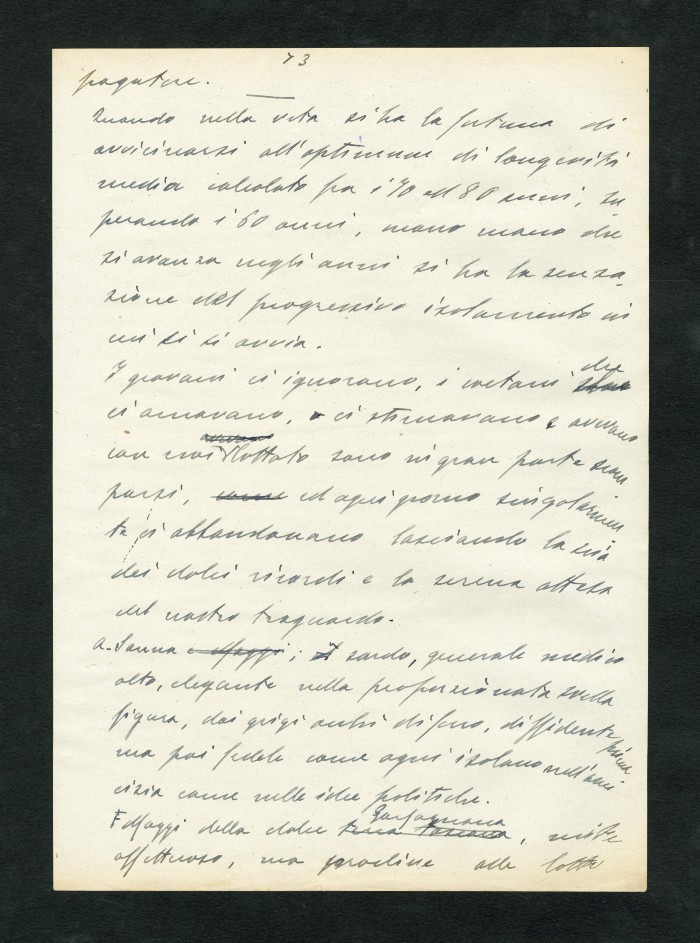 73
pagatore.
Quando nella vita si ha la fortuna di
avvicinarsi all'optimum di longevità
media calcolato fra i 70 ed 80 anni, su
perando i 60 anni, mano mano che
si avanza negli anni si ha la sensa-
zione del progressivo isolamento in
cui ci si avvia.
I giovani ci ignorano, i coetanei che
ci amavano, ci stimavano e avevano
con noi lottato sono in gran parte scom
parsi, ed ogni giorno singolarmen
te ci abbandonano lasciando la scia
dei dolci ricordi e la serena attesa
del nostro traguardo.
A. Sanna e Maggi; sardo, generale medico
alto, elegante nella proporzionata snella
figura, dai grigi occhi di fumo, diffidente prima
ma poi fedele come ogni isolano nell'ami
cizia come nelle idee politiche.
F Maggi della dolce terra Toscana Garfagnana, mite
affettuoso, ma proclive alle lotte